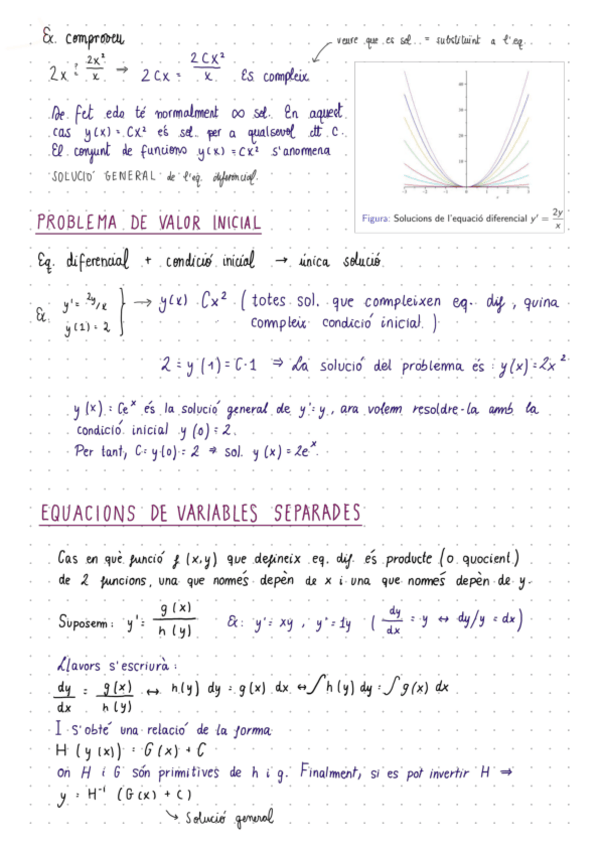 Ex. comproveu
veure que es sol. = substituint a l'eq.
2x ?= 2x²/x → 2Cx = 2Cx²/x Es compleix
De fet edo té normalment ∞ sol. En aquest
cas y(x) = Cx² és sol. per a qualsevol ctt C.
El conjunt de funcions y(x) = Cx² s'anomena
SOLUCIÓ GENERAL de l'eq. diferencial.
Figura: Solucions de l'equació diferencial y' = 2y/x
PROBLEMA DE VALOR INICIAL
Eq. diferencial + condició inicial → única solució
Ex: y' = 2y/x
y(1) = 2
} → y(x) Cx² (totes sol. que compleixen eq. dif, quina
compleix condició inicial.)
2 = y(1) = C·1 ⇒ La solució del problema és: y(x) = 2x²
y(x) = Ceˣ és la solució general de y' = y, ara volem resoldre-la amb la
condició inicial y(0) = 2.
Per tant, C = y(0) = 2 ⇒ sol. y(x) = 2eˣ.
EQUACIONS DE VARIABLES SEPARADES
Cas en què funció f(x,y) que defineix eq. dif. és producte (o quocient)
de 2 funcions, una que només depèn de x i una que només depèn de y.
Suposem: y' = g(x)/h(y) Ex: y' = xy, y' = 1y (dy/dx = y ↔ dy/y = dx)
Llavors s'escriurà:
dy/dx = g(x)/h(y) ↔ h(y) dy = g(x) dx ↔ ∫h(y) dy = ∫g(x) dx
I s'obté una relació de la forma
H(y(x)) = G(x) + C
on H i G són primitives de h i g. Finalment, si es pot invertir H ⇒
y = H⁻¹ (G(x) + C)
↘ Solució general